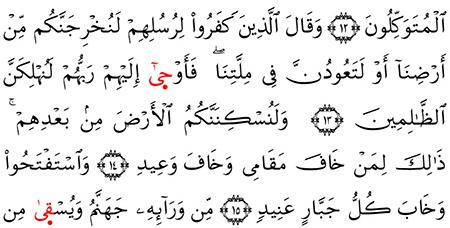 ٱلۡمُتَوَكِّلُونَ ١٢ وَقَالَ ٱلَّذِينَ كَفَرُواْ لِرُسُلِهِمۡ لَنُخۡرِجَنَّكُم مِّنۡ
أَرۡضِنَآ أَوۡ لَتَعُودُنَّ فِي مِلَّتِنَاۖ فَأَوۡحَىٰٓ إِلَيۡهِمۡ رَبُّهُمۡ لَنُهۡلِكَنَّ
ٱلظَّٰلِمِينَ ١٣ وَلَنُسۡكِنَنَّكُمُ ٱلۡأَرۡضَ مِنۢ بَعۡدِهِمۡۚ
ذَٰلِكَ لِمَنۡ خَافَ مَقَامِي وَخَافَ وَعِيدِ ١٤ وَٱسۡتَفۡتَحُواْ
وَخَابَ كُلُّ جَبَّارٍ عَنِيدٖ ١٥ مِّن وَرَآئِهِۦ جَهَنَّمُ وَيُسۡقَىٰ مِن